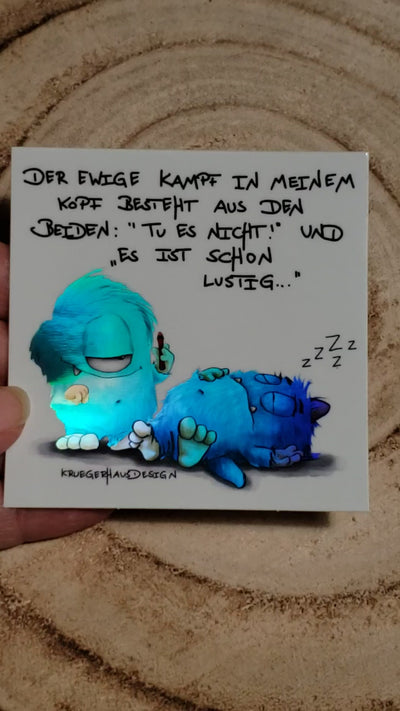 DER EWIGE KAMPF IN MEINEM
KOPF BESTEHT AUS DEN
BEIDEN: "TU ES NICHT!" UND
„ES IST SCHON
LUSTIG..."
zzZzz
KRUEGERHAUSDESIGN